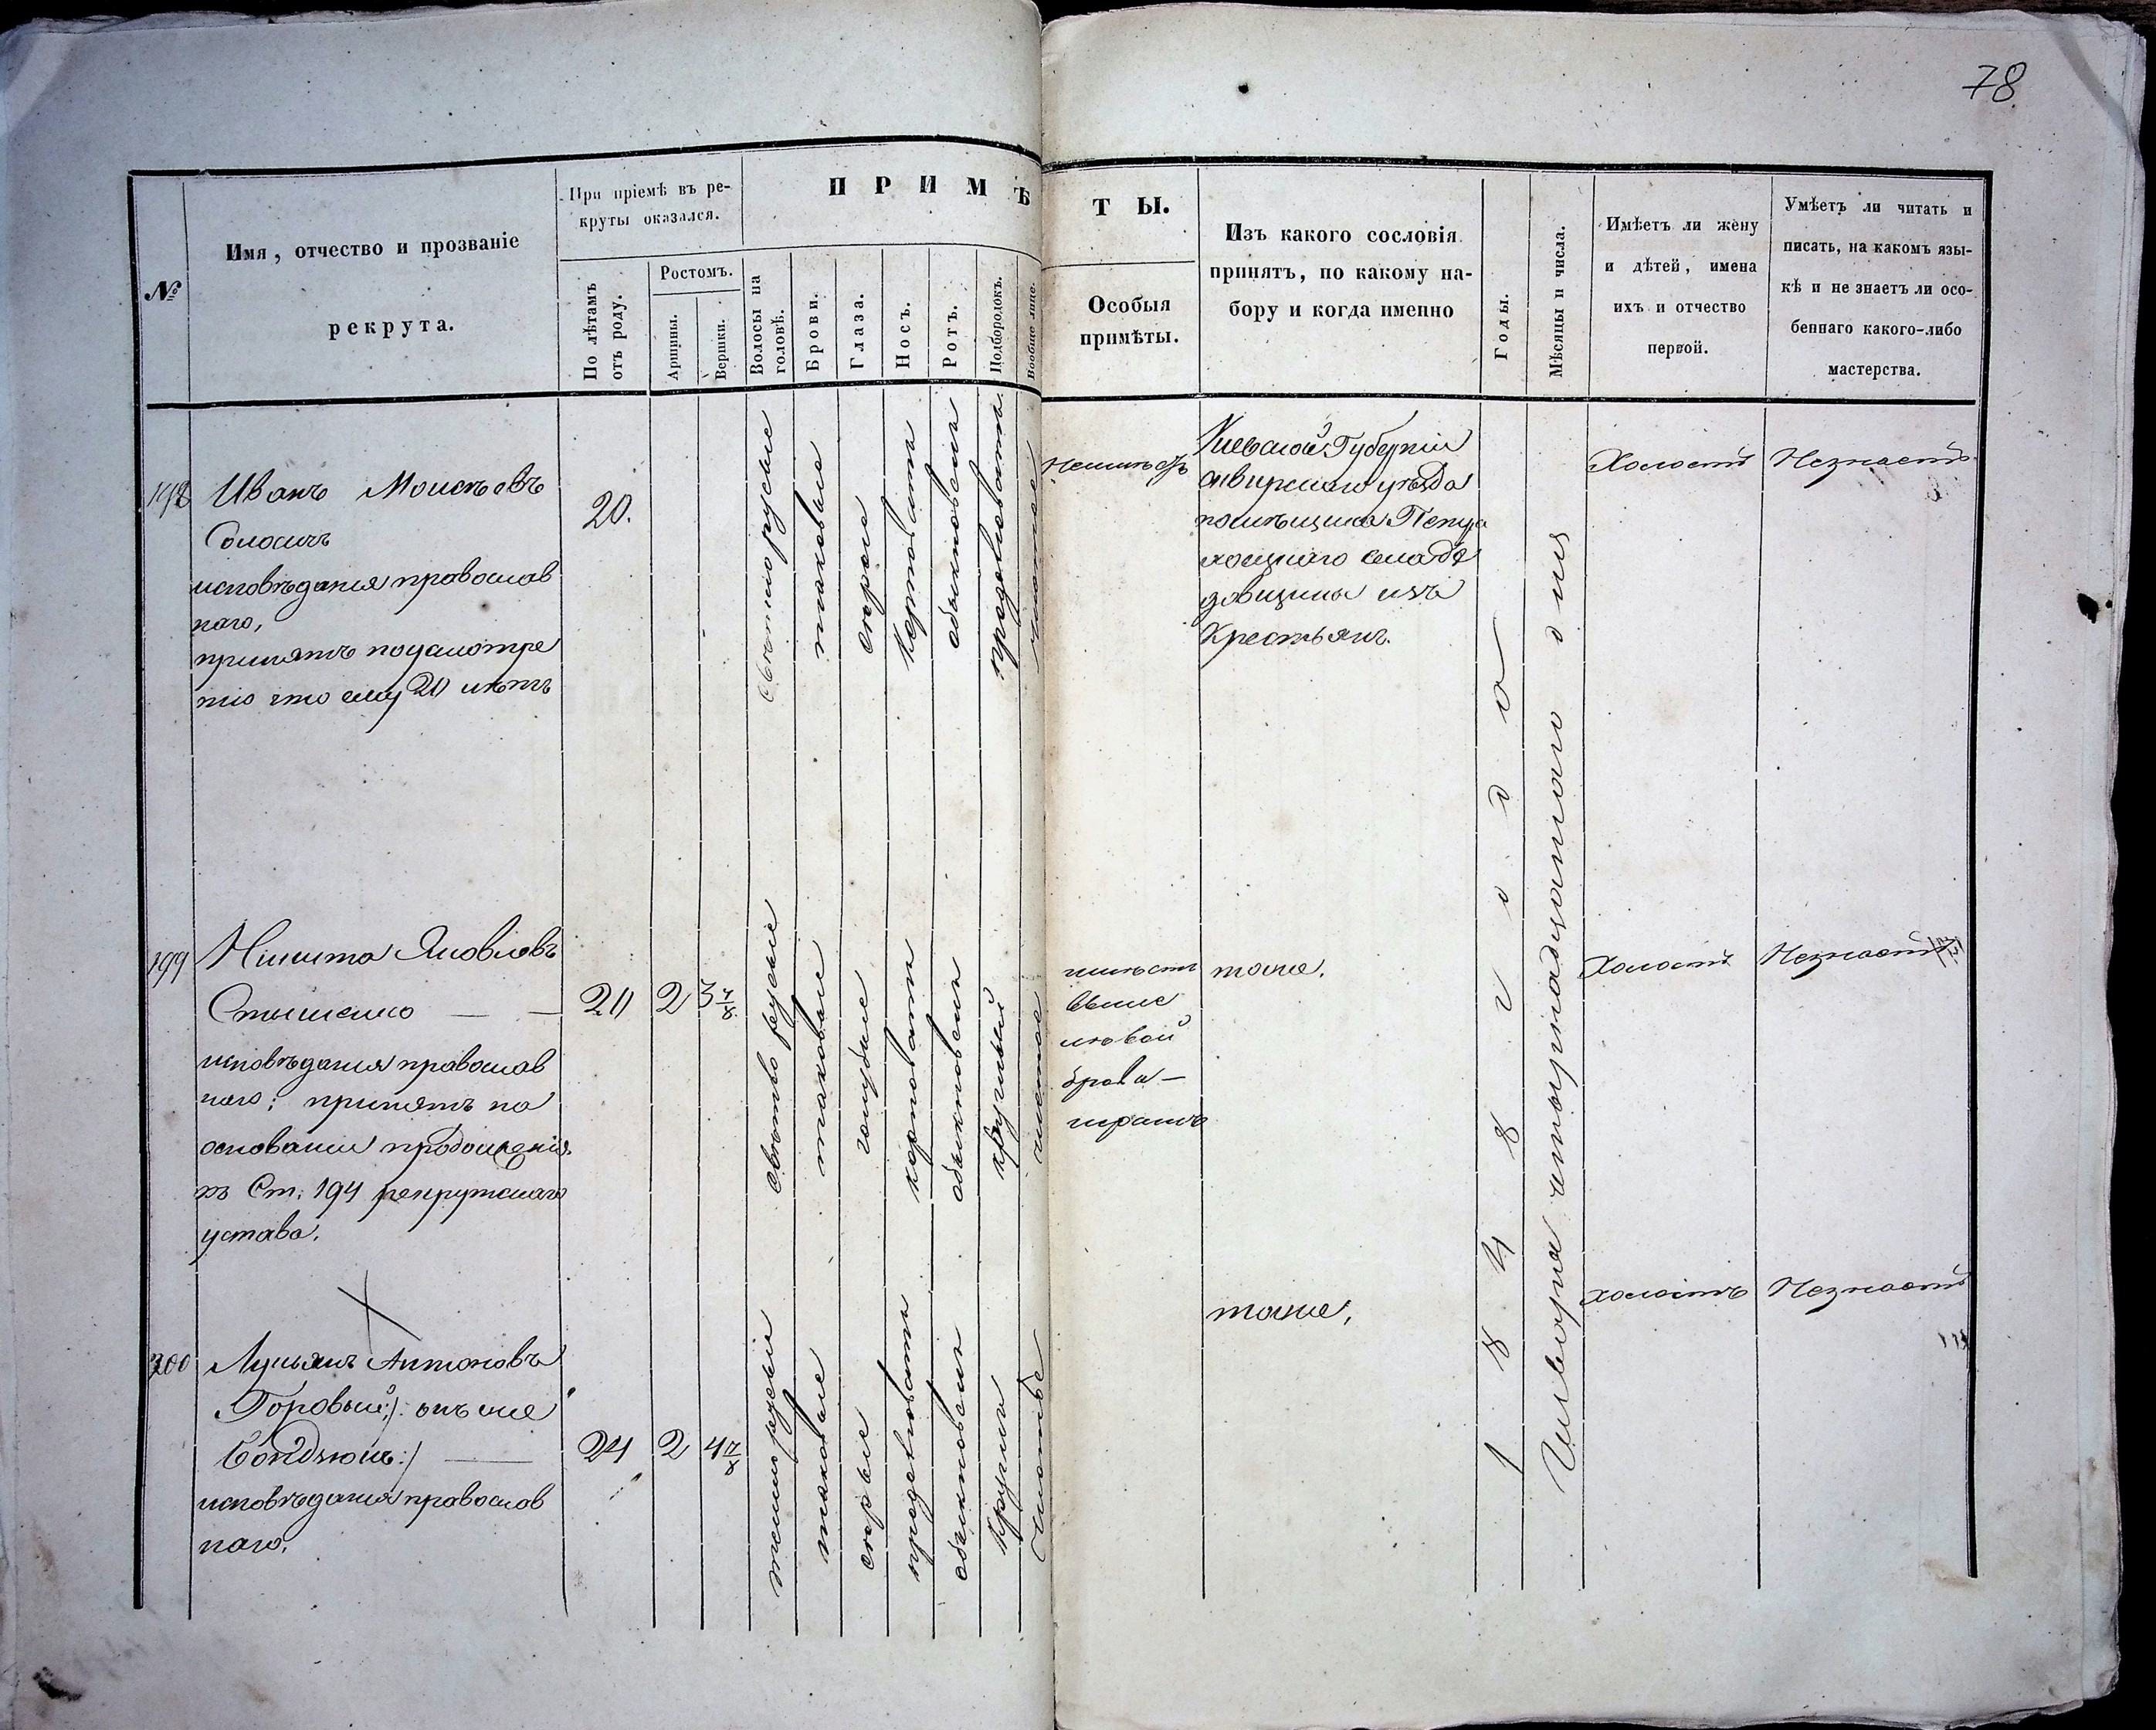 78
№
Имя, отчество и прозваніе
рекрута.
При пріемѣ въ ре-
круты оказался.
По лѣтамъ
отъ роду.
Ростомъ.
Аршины.
Вершки.
ПРИМѢ
Волосы на
головѣ.
Брови.
Глаза.
Носъ.
Ротъ.
Подбородокъ.
Вообще лице.
ТЫ.
Особыя
примѣты.
Изъ какого сословія
принятъ, по какому на-
бору и когда именно
Годы.
Мѣсяцы и числа.
Имѣетъ ли жену
и дѣтей, имена
ихъ и отчество
первой.
Умѣетъ ли читать и
писать, на какомъ язы-
кѣ и не знаетъ ли осо-
беннаго какого-либо
мастерства.
198
Иванъ Моисѣевъ
исповѣданія православ
наго,
принятъ по усмотре
нію что ему 20 лѣтъ
20.
свѣтлорусые
таковые
серые
обыкновенъ
чистое
Неимѣетъ
Киевской Губерніи
сквирскаго уѣзда
помѣщика
изъ
Крестьянъ.
Холостъ
Незнаетъ
199
Никита Яковлевъ
исповѣданія православ
наго; принятъ на
основаніи продолженія
къ Ст. 194 рекрутскаго
устава.
20
2
3 7/8
свѣтло русые
таковые
голубые
обыкновенъ
круглый
чистое
выше
лѣвой
брови
шрамъ
тоже.
Холостъ
Незнаетъ
200
Лукьянъ Антоновъ
Горовый /: онъ же
:/
исповѣданія православ
наго.
24
2
4 7/8
темнорусые
таковые
серые
обыкновенъ
круглъ
чистое
тоже,
холостъ
Незнаетъ
1848 года
Генваря четырнадцатаго дня